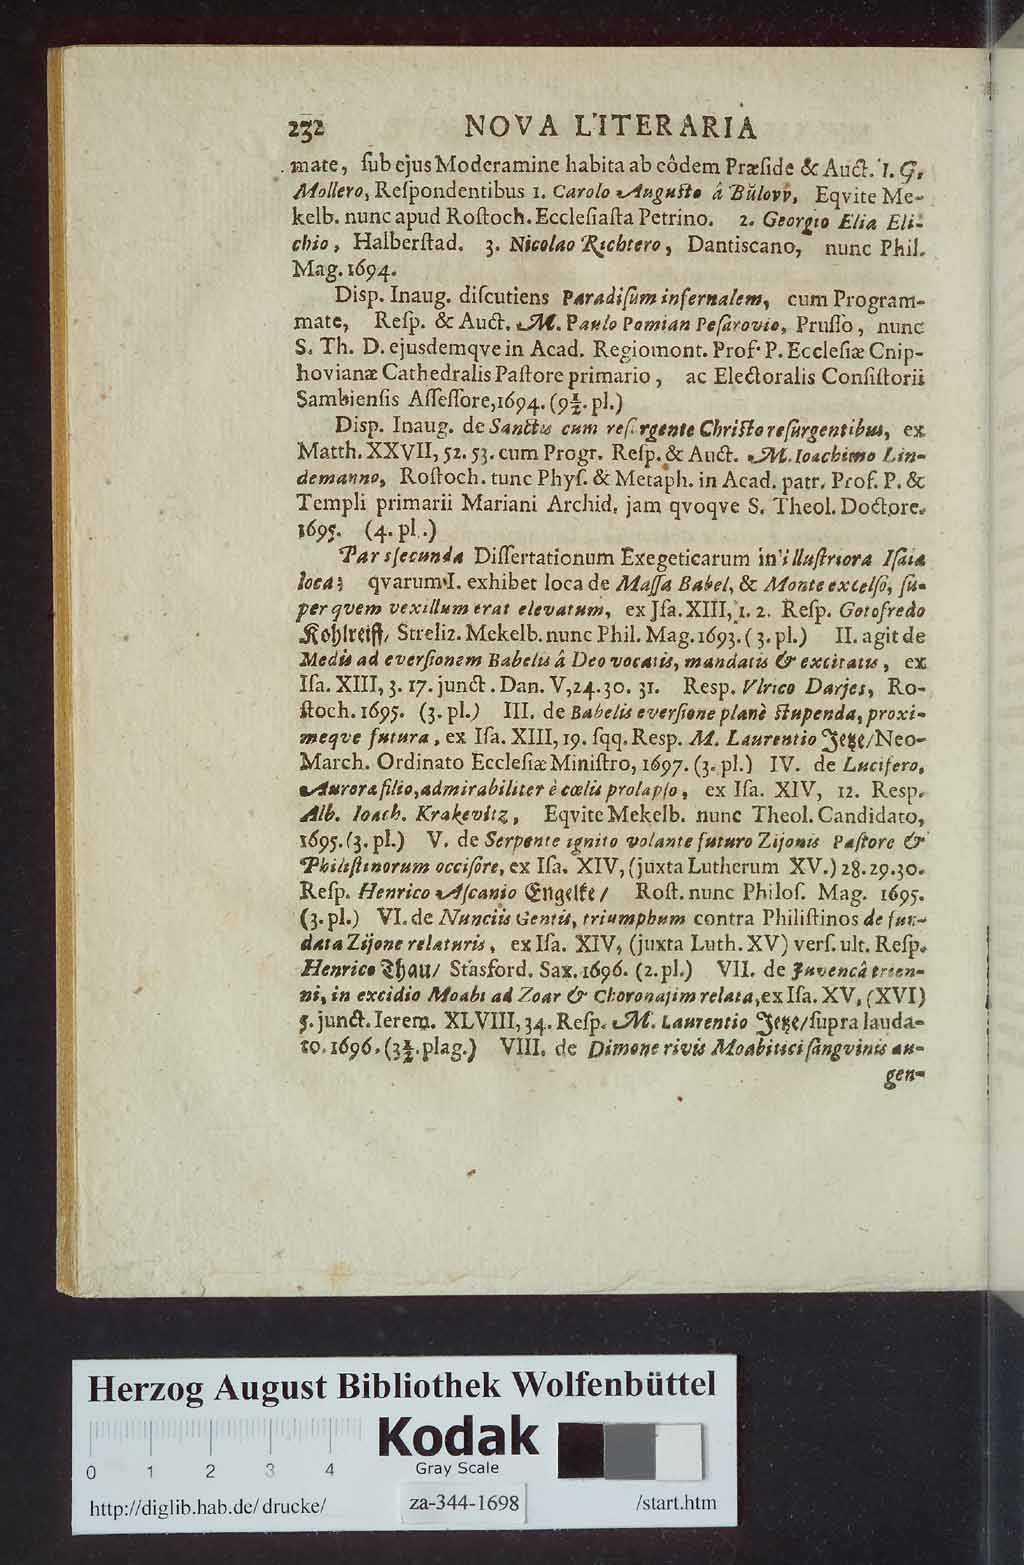 232 NOVA LITERARIA
mate, ſub ejus Moderamine habita ab eôdem Præſide & Auct. I. G.
Mollero, Reſpondentibus 1. Carolo Auguſto â Bülovv, Eqvite Me-
kelb. nunc apud Roſtoch. Eccleſiaſta Petrino. 2. Georgio Elia Eli-
chio, Halberſtad. 3. Nicolao Richtero, Dantiscano, nunc Phil.
Mag. 1694.
Diſp. Inaug. diſcutiens Paradiſum infernalem, cum Program-
mate, Reſp. & Auct. M. Paulo Pomian Peſarovio, Pruſſo, nunc
S. Th. D. ejusdemqve in Acad. Regiomont. Prof. P. Eccleſiæ Cnip-
hovianæ Cathedralis Paſtore primario, ac Electoralis Conſiſtorii
Sambienſis Aſſeſſore, 1694. (9½. pl.)
Diſp. Inaug. de Sanctis cum reſurgente Chriſto reſurgentibus, ex
Matth. XXVII, 52. 53. cum Progr. Reſp. & Auct. M. Ioachimo Lin-
demanno, Roſtoch. tunc Phyſ. & Metaph. in Acad. patr. Prof. P. &
Templi primarii Mariani Archid. jam qvoqve S. Theol. Doctore.
1695. (4. pl.)
Pars ſecunda Diſſertationum Exegeticarum in illuſtriora Iſaiæ
loca; qvarum I. exhibet loca de Maſſa Babel, & Monte excelſo, ſu-
per qvem vexillum erat elevatum, ex Jſa. XIII, 1. 2. Reſp. Gotofredo
Kohlreiff/ Streliz. Mekelb. nunc Phil. Mag. 1693. (3. pl.) II. agit de
Medis ad everſionem Babelis â Deo vocatis, mandatis & excitatis, ex
Iſa. XIII, 3. 17. junct. Dan. V, 24. 30. 31. Resp. Vlrico Darjes, Ro-
ſtoch. 1695. (3. pl.) III. de Babelis everſione planè ſtupenda, proxi-
meqve futura, ex Iſa. XIII, 19. ſqq. Resp. M. Laurentio Jetze/ Neo-
March. Ordinato Eccleſiæ Miniſtro, 1697. (3. pl.) IV. de Lucifero,
Auroræ filio, admirabiliter è cœlis prolapſo, ex Iſa. XIV, 12. Resp.
Alb. Ioach. Krakevitz, Eqvite Mekelb. nunc Theol. Candidato,
1695. (3. pl.) V. de Serpente ignito volante futuro Zijonis Paſtore &
Philiſtinorum occiſore, ex Iſa. XIV, (juxta Lutherum XV.) 28. 29. 30.
Reſp. Henrico Aſcanio Engelke/ Roſt. nunc Philoſ. Mag. 1695.
(3. pl.) VI. de Nunciis Gentis, triumphum contra Philiſtinos de fun-
data Zijone relaturis, ex Iſa. XIV, (juxta Luth. XV) verſ. ult. Reſp.
Henrico Thau/ Stasford. Sax. 1696. (2. pl.) VII. de Juvencâ trien-
ni, in excidio Moabi ad Zoar & Choronajim relata, ex Iſa. XV, (XVI)
5. junct. Ierem. XLVIII, 34. Reſp. M. Laurentio Jetze/ ſupra lauda-
to. 1696. (3½. plag.) VIII. de Dimone rivis Moabitici ſangvinis au-
gen-
Herzog August Bibliothek Wolfenbüttel
Kodak
Gray Scale
0 1 2 3 4
http://diglib.hab.de/drucke/ za-344-1698 /start.htm